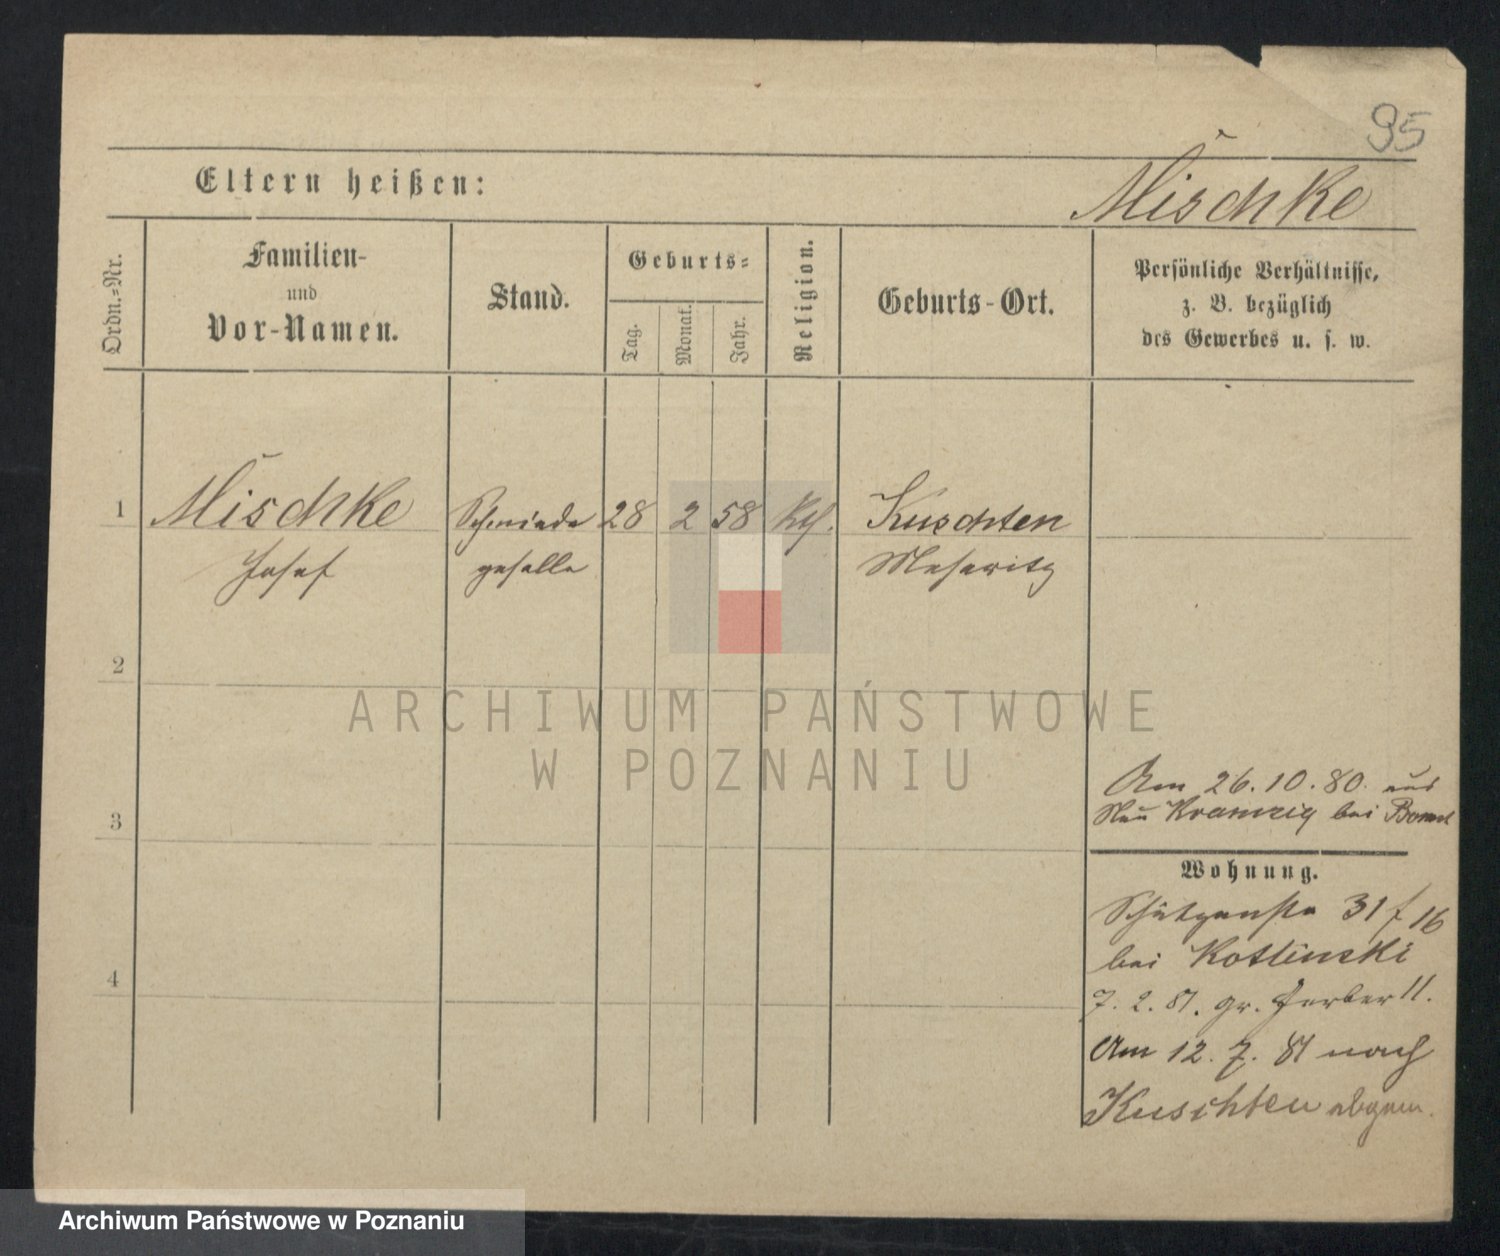 95
Eltern heißen:
Mischke
Ordn.=Nr.
Familien-
und
Vor-Namen.
Stand.
Geburts=
Tag.
Monat.
Jahr.
Religion.
Geburts-Ort.
Persönliche Verhältnisse,
z. B. bezüglich
des Gewerbes u. s. w.
1
Mischke
Josef
Schmiede
geselle
28
2
58
Kth.
Kuschten
Meseritz
2
ARCHIWUM PAŃSTWOWE
W POZNANIU
3
Am 26.10.80. aus
Neu Kramzig bei Bomst
Wohnung.
Schützenstr 31 f 16
bei Kotlinski
7. 2. 81. gr. Gerber 11.
4
Am 12. 7. 81 nach
Kuschten abgem.
Archiwum Państwowe w Poznaniu